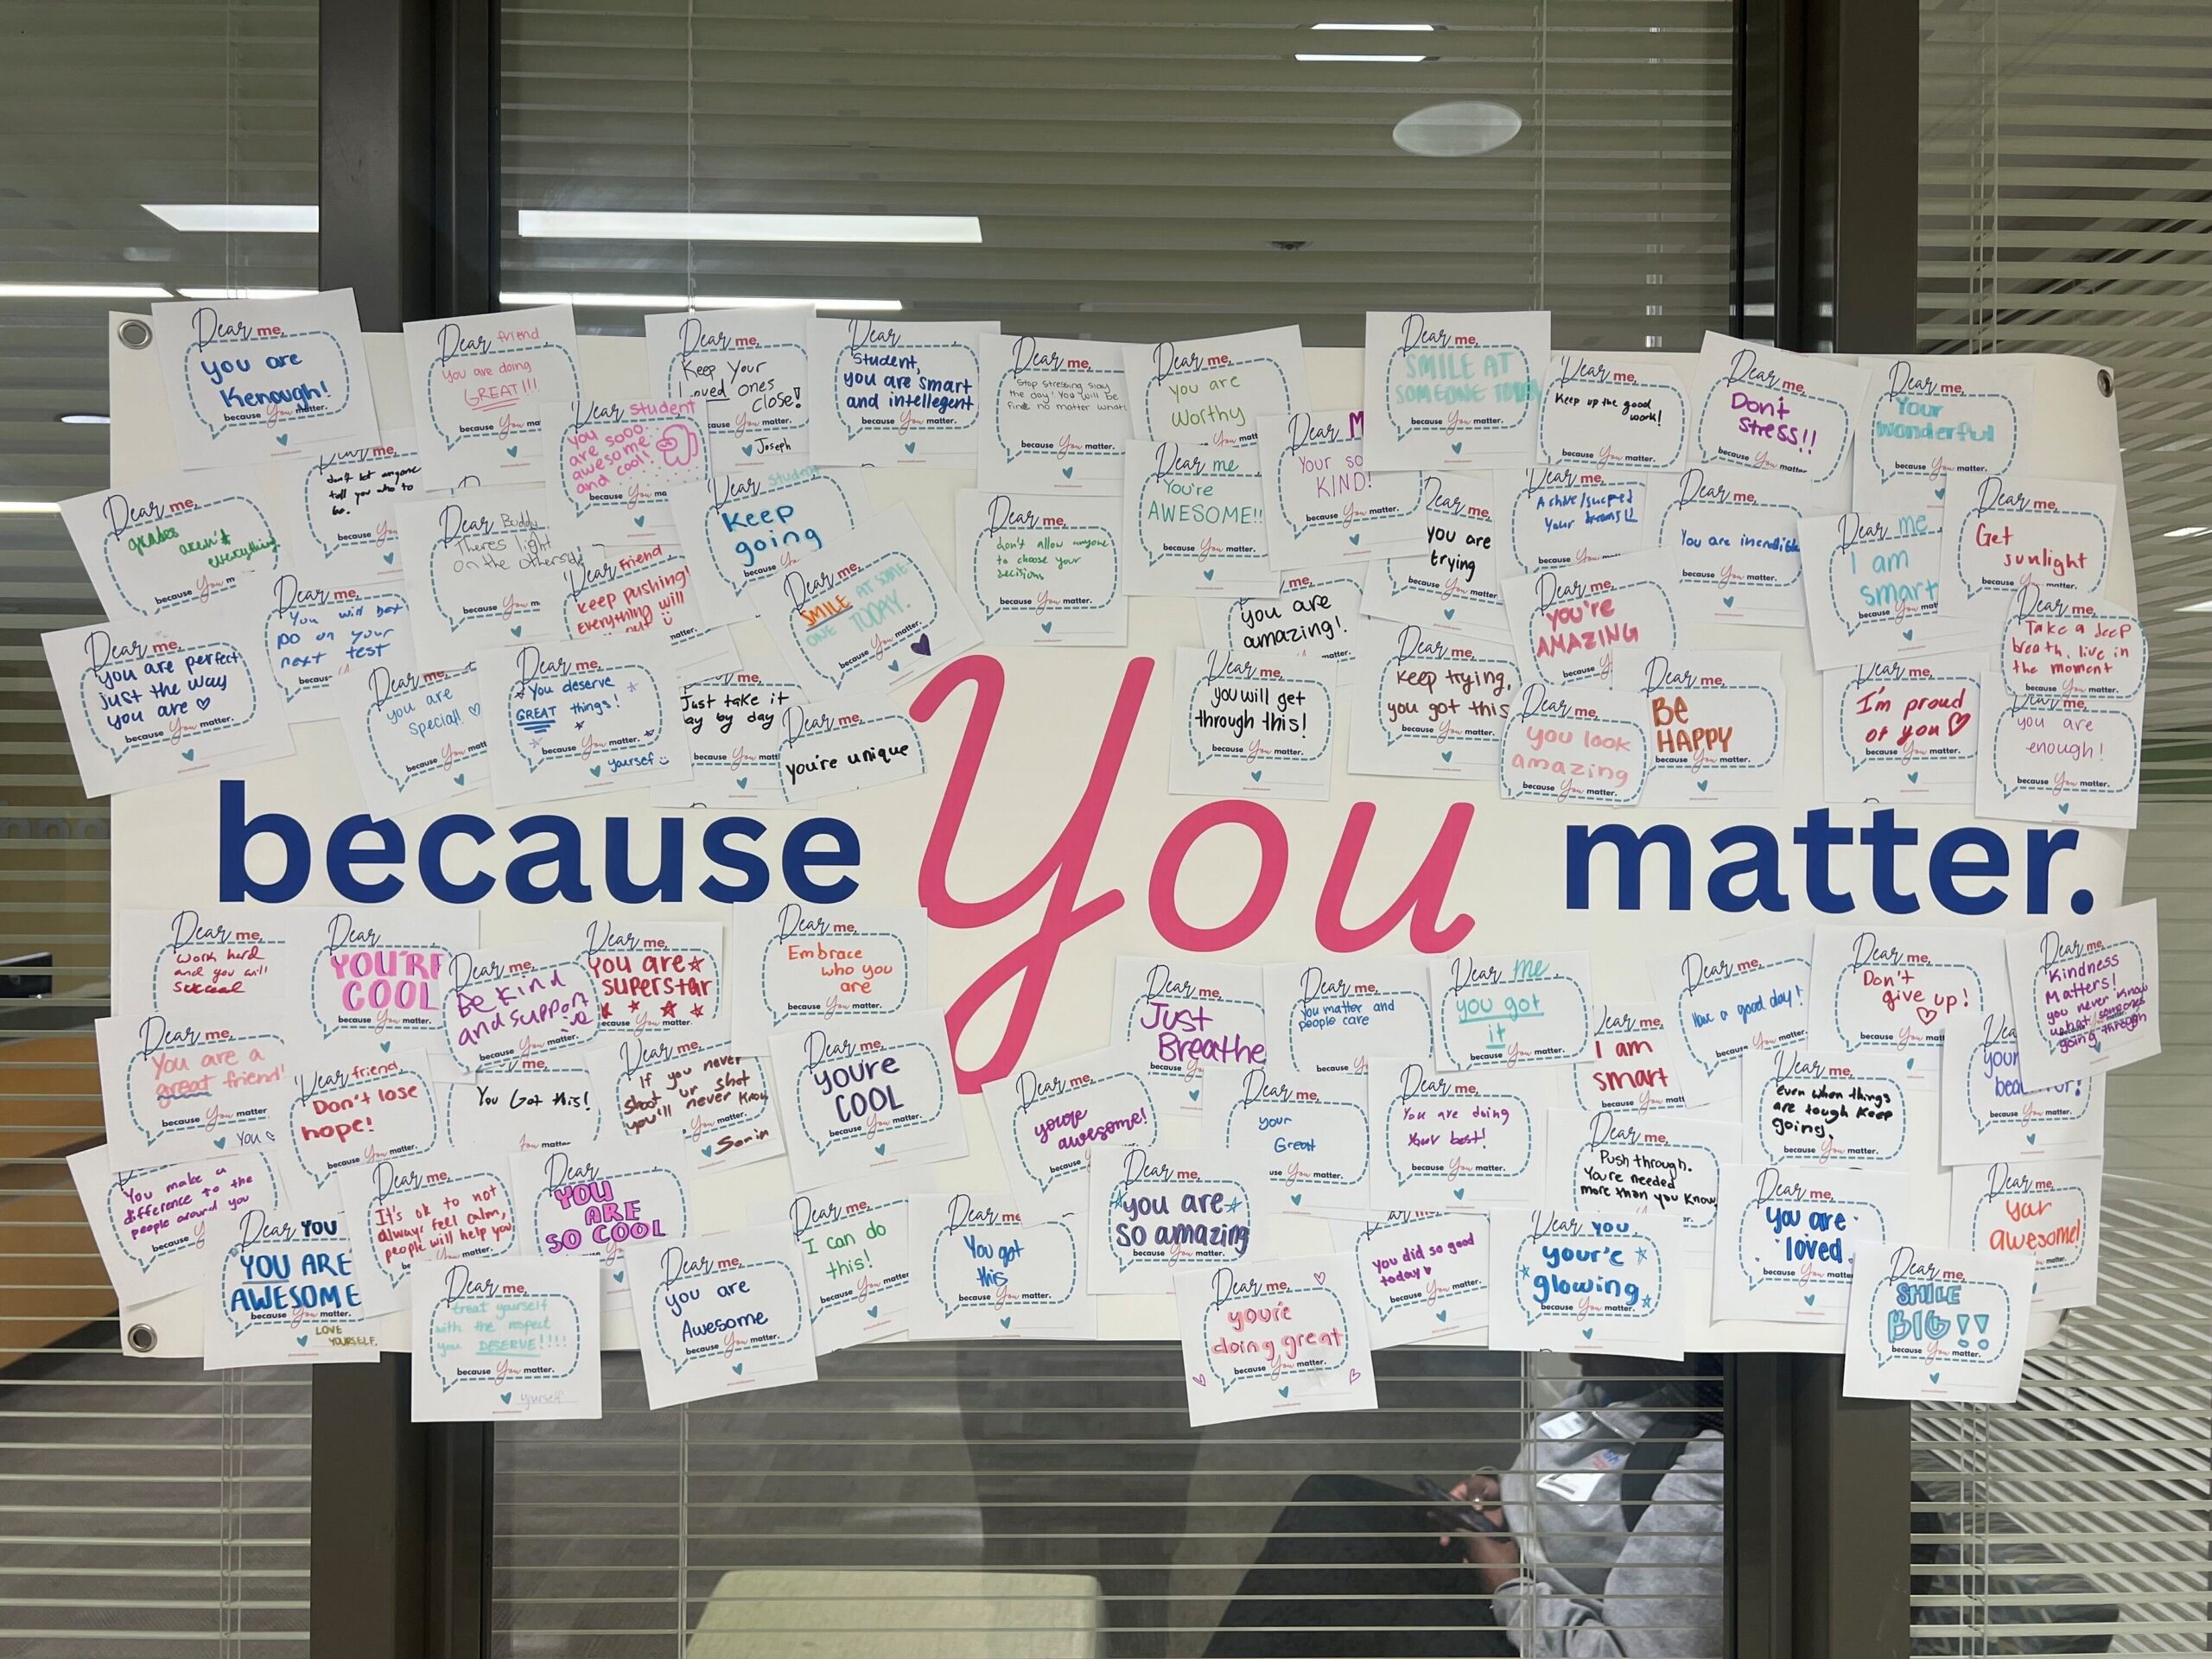 Dear me,
you are
Kenough!
because You matter.
Dear friend
you are doing
GREAT!!!
because You
Dear me,
Keep Your
Loved ones
close!
because You
Joseph
Dear
Student,
you are smart
and intellegent
because You matter.
Dear me,
Stop stressing slay
the day! You will be
fine no matter what
because You matter.
Dear me,
you are
worthy
Dear me,
SMILE AT
SOMEONE TODAY
because You matter.
Dear me,
Keep up the good
work!
because You matter.
Dear me,
Don't
stress!!
because You matter.
Dear me,
Your
wonderful
because You matter.
Dear me,
grades
aren't
everything
because You
don't let anyone
tell you who to
be.
because You
Dear student
you
are sooo
awesome
and cool!
because You
Dear Buddy
Theres light
on the otherside
because You
Dear student
Keep
going
because
Dear me,
don't allow anyone
to choose your
decisions
because You matter.
Dear me
You're
AWESOME!!
because You matter.
Dear
Your so
KIND!
because You matter.
Dear me,
you are
trying
because You matter.
Dear me,
your dreams!!
because
Dear me,
You are incredible
because You matter.
Dear me
I am
smart
because You
Dear me,
Get
sunlight
because You matter.
Dear me,
you are perfect
just the way
you are ♡
because You matter.
Dear me,
You will
DO on your
next test
Dear friend
Keep pushing!
Everything will
Dear me,
SMILE AT SOME
ONE TODAY.
because You matter.
me,
you are
amazing!
Dear me,
you're
AMAZING
because
Dear me,
Take a deep
breath, live in
the moment
because You matter.
Dear me,
you are
special! ♡
because You
Dear me,
You deserve
GREAT things!
because You matter.
yourself
me,
Just take it
day by day
because You
Dear me,
you're unique
Dear me,
you will get
through this!
because You matter.
Dear me,
Keep trying,
you got this
because You matter.
Dear me,
you look
amazing
because You matter.
Dear me,
Be
HAPPY
because You matter.
Dear me,
I'm proud
of you ♡
because You matter.
Dear me,
you are
enough!
because You matter.
because You matter.
Dear me,
work hard
and you will
succeed
Dear
YOU'RE
COOL
because You matter.
Dear me,
Be kind
and support
because You matter.
Dear me,
you are
superstar
because You matter.
Dear me,
Embrace
who you
are
because You matter.
Dear me,
Just
Breathe
because
Dear me,
you matter and
people care
because
Dear me
you got
it
because You matter.
Dear me,
I am
smart
because You
Dear me,
Have a good day!
because You matter.
Dear me,
Don't
give up!
♡
because You matter.
Dear me,
Kindness
Matters!
you never know
what someones
going through
Dear me,
You are a
great friend!
because You matter
You
Dear friend,
Don't lose
hope!
because You matter.
You Got this!
You matter.
Dear me,
If you never
shoot ur shot
you'll never know
You matter.
Dear me,
youre
COOL
because You matter.
Dear me,
you're
awesome!
because
Dear me,
your
Great
because You matter.
Dear me,
You are doing
Your best!
because You matter.
Dear me,
Push through.
You're needed
more than you know
even when things
are tough keep
going.
because You matter.
your
because You matter.
You make a
difference to the
people around you
because
Dear YOU
YOU ARE
AWESOME
because You matter.
LOVE
YOURSELF.
Dear me,
It's ok to not
always feel calm,
people will help you
You matter.
Dear
YOU
ARE
SO COOL
Dear me,
treat yourself
with the respect
you DESERVE!!!!
because You matter.
yourself
Dear me,
you are
Awesome
because You matter.
Dear me,
I can do
this!
because You matter
Dear me
You got
this
because You matter.
Dear me,
you are
so amazing
because You matter.
Dear me,
you're
doing great
because You matter.
You did so good
today
because You matter.
Dear you,
your'e
glowing
because You matter.
Dear me,
you are
loved
because You matter.
Dear me,
your
awesome!
Dear me,
SMILE
BIG!!
because You matter.